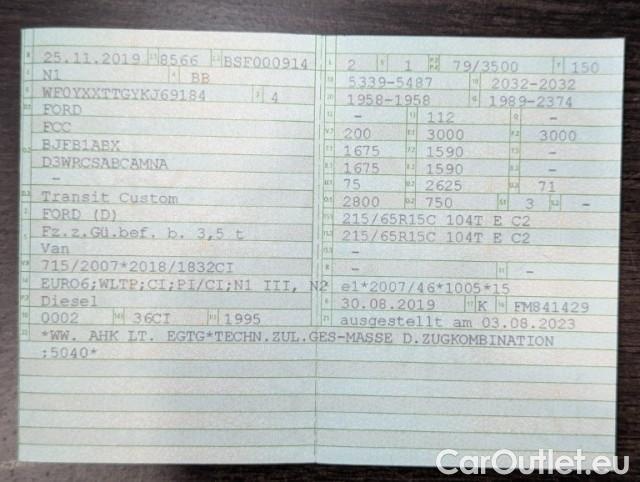 25.11.2019 8566 BSF000914
N1 BB
WF0YXXTTGYKJ69184 4
FORD
FCC
BJFB1ABX
D3WRCSABCAMNA
-
Transit Custom
FORD (D)
Fz.z.Gü.bef. b. 3,5 t
Van
715/2007*2018/1832CI
EURO6;WLTP;CI;PI/CI;N1 III, N2
Diesel
0002 36CI 1995
*WW. AHK LT. EGTG*TECHN.ZUL.GES-MASSE D.ZUGKOMBINATION
;5040*
2 1 79/3500 150
5339-5487 2032-2032
1958-1958 1989-2374
- 112 -
200 3000 3000
1675 1590 -
1675 1590 -
75 2625 71
2800 750 3 -
215/65R15C 104T E C2
215/65R15C 104T E C2
-
- -
e1*2007/46*1005*15
30.08.2019 K FM841429
ausgestellt am 03.08.2023
CarOutlet.eu